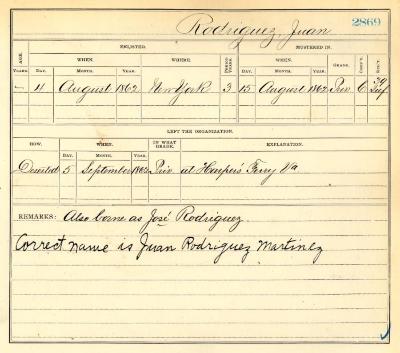 2869
Rodriguez, Juan
ENLISTED. MUSTERED IN.
AGE. WHEN. WHERE. PERIOD WHEN. GRADE. COMP'Y. REG'T.
YEARS. DAY. MONTH. YEAR. YEARS. DAY. MONTH. YEAR.
– 11 August 1862 New York 3 15 August 1862 Priv C 39 Inf
LEFT THE ORGANIZATION.
HOW. WHEN. IN WHAT GRADE. EXPLANATION.
DAY. MONTH. YEAR.
Deserted 5 September 1862 Priv at Harper's Ferry Va
REMARKS: Also borne as José Rodriguez
Correct name is Juan Rodriguez Martinez